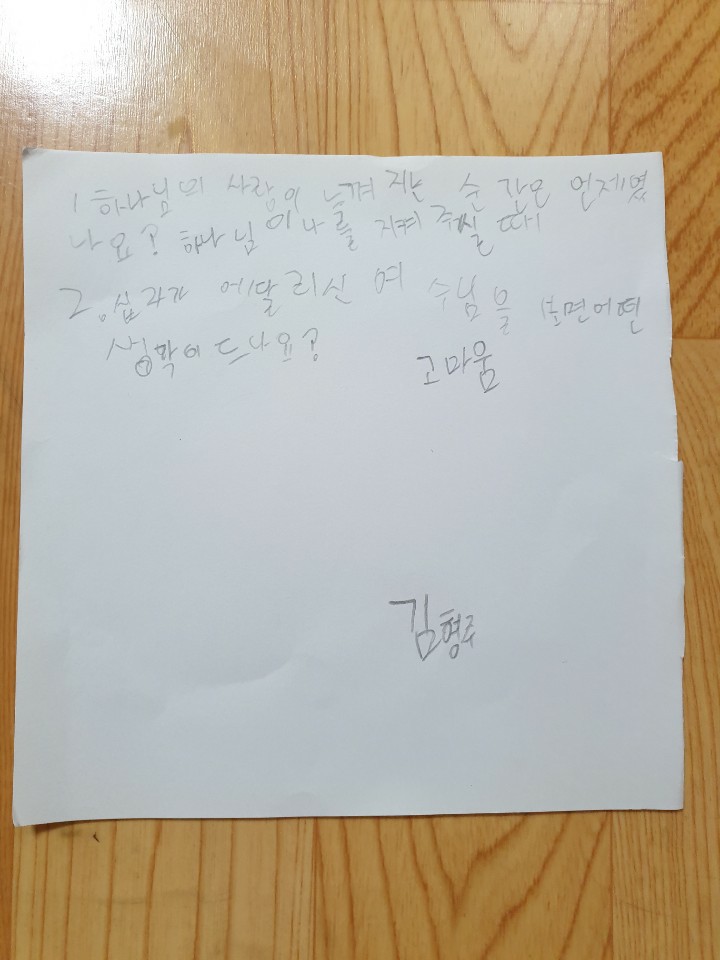 1 하나님의 사랑이 느껴지는 순간은 언제였
나요? 하나님이 나를 지켜주실 때
2. 십자가에 달리신 예수님을 보면 어떤
생각이 드나요? 고마움
김형주